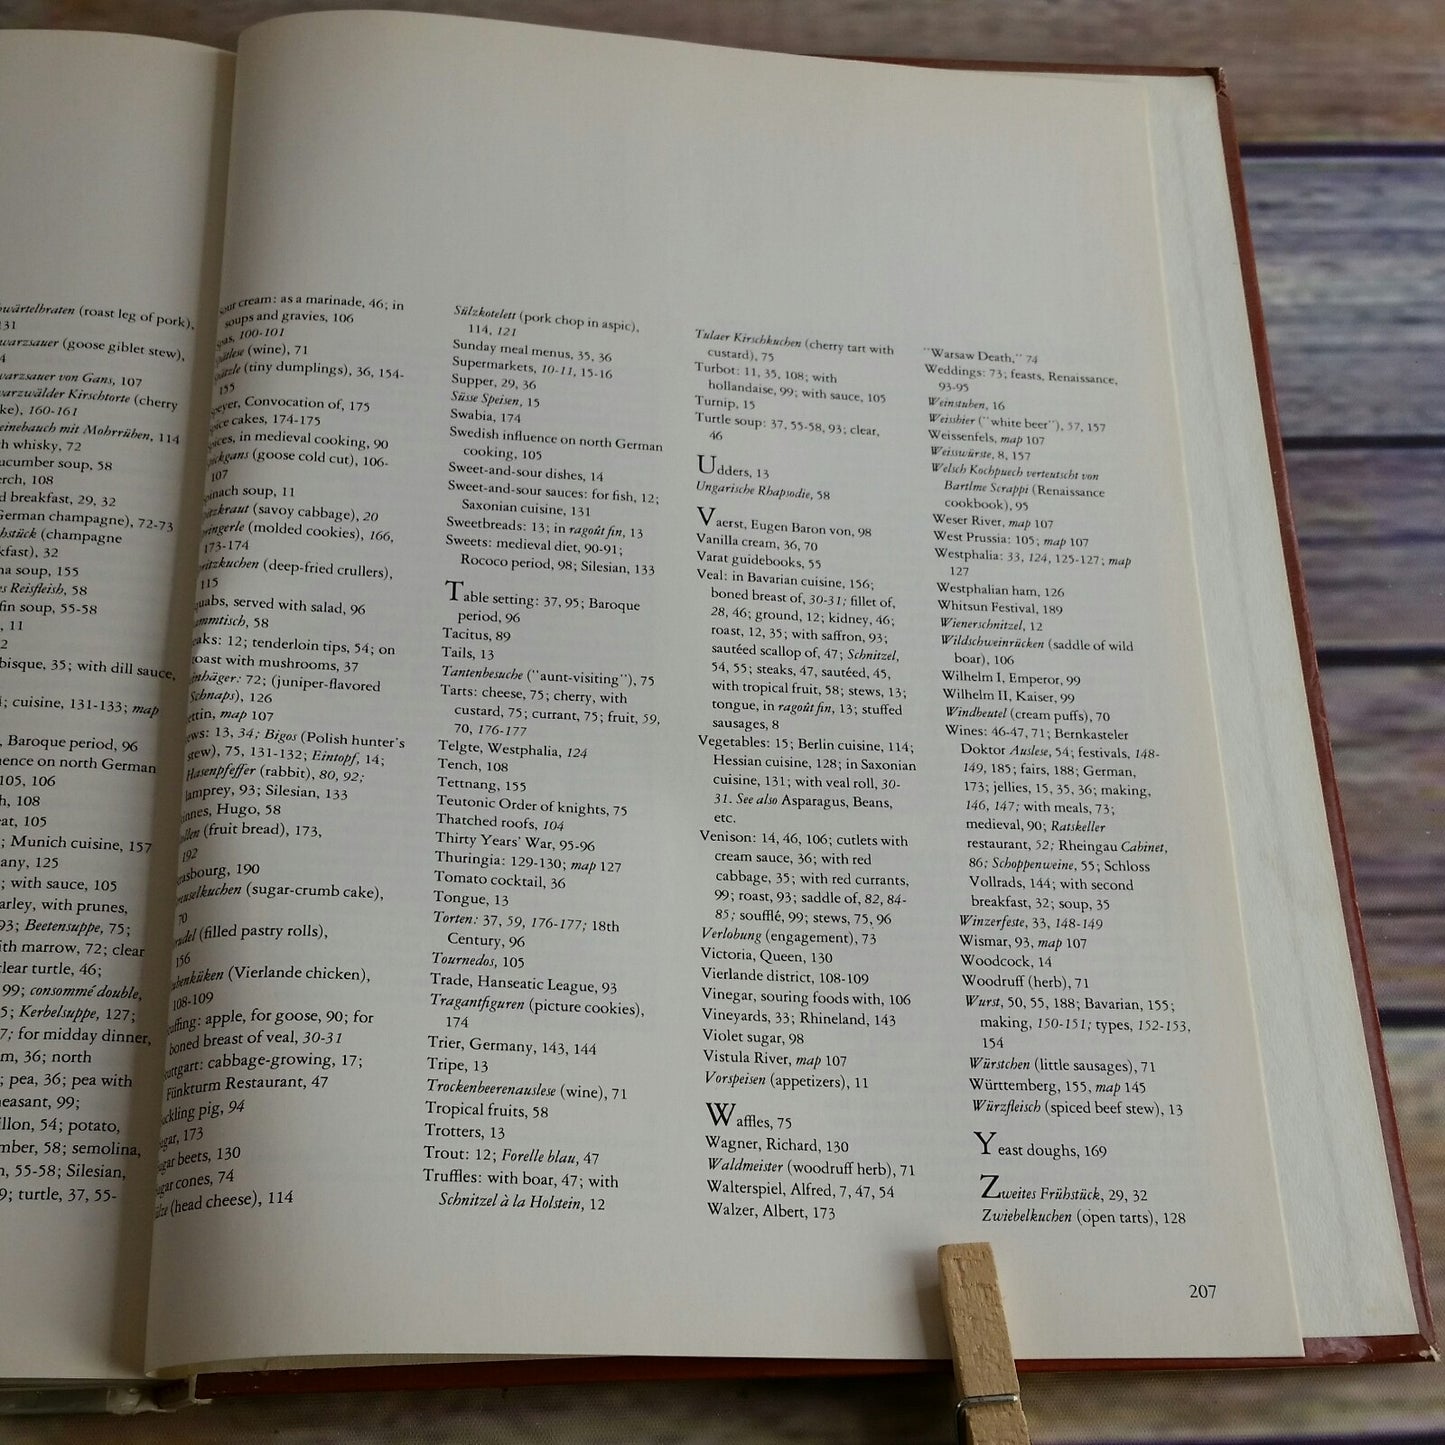 (roast leg of pork),
(goose giblet stew),
von Gans, 107
Kirschtorte (cherry
160-161
mit Mohrrüben, 114
whisky, 72
soup, 58
108
breakfast, 29, 32
champagne), 72-73
(champagne
32
soup, 155
Reisfleish, 58
soup, 55-58
11
bisque, 35; with dill sauce,
cuisine, 131-133; map
Baroque period, 96
on north German
105, 106
108
105
Munich cuisine, 157
125
with sauce, 105
with prunes,
93; Beetensuppe, 75;
with marrow, 72; clear
turtle, 46;
99; consommé double,
Kerbelsuppe, 127;
for midday dinner,
36; north
pea, 36; pea with
99;
54; potato,
58; semolina,
55-58; Silesian,
turtle, 37, 55-
cream: as a marinade, 46; in
soups and gravies, 106
100-101
(wine), 71
(tiny dumplings), 36, 154-
155
Convocation of, 175
cakes, 174-175
in medieval cooking, 90
(goose cold cut), 106-
107
soup, 11
(savoy cabbage), 20
(molded cookies), 166,
173-174
(deep-fried crullers),
115
served with salad, 96
58
12; tenderloin tips, 54; on
toast with mushrooms, 37
72; (juniper-flavored
Schnaps), 126
map 107
13, 34; Bigos (Polish hunter's
stew), 75, 131-132; Eintopf, 14;
Hasenpfeffer (rabbit), 80, 92;
lamprey, 93; Silesian, 133
Hugo, 58
(fruit bread), 173,
192
190
(sugar-crumb cake),
70
(filled pastry rolls),
156
(Vierlande chicken),
108-109
apple, for goose, 90; for
boned breast of veal, 30-31
cabbage-growing, 17;
Fünkturm Restaurant, 47
pig, 94
173
beets, 130
cones, 74
(head cheese), 114
Sülzkotelett (pork chop in aspic),
114, 121
Sunday meal menus, 35, 36
Supermarkets, 10-11, 15-16
Supper, 29, 36
Süsse Speisen, 15
Swabia, 174
Swedish influence on north German
cooking, 105
Sweet-and-sour dishes, 14
Sweet-and-sour sauces: for fish, 12;
Saxonian cuisine, 131
Sweetbreads: 13; in ragoût fin, 13
Sweets: medieval diet, 90-91;
Rococo period, 98; Silesian, 133
Table setting: 37, 95; Baroque
period, 96
Tacitus, 89
Tails, 13
Tantenbesuche ("aunt-visiting"), 75
Tarts: cheese, 75; cherry, with
custard, 75; currant, 75; fruit, 59,
70, 176-177
Telgte, Westphalia, 124
Tench, 108
Tettnang, 155
Teutonic Order of knights, 75
Thatched roofs, 104
Thirty Years' War, 95-96
Thuringia: 129-130; map 127
Tomato cocktail, 36
Tongue, 13
Torten: 37, 59, 176-177; 18th
Century, 96
Tournedos, 105
Trade, Hanseatic League, 93
Tragantfiguren (picture cookies),
174
Trier, Germany, 143, 144
Tripe, 13
Trockenbeerenauslese (wine), 71
Tropical fruits, 58
Trotters, 13
Trout: 12; Forelle blau, 47
Truffles: with boar, 47; with
Schnitzel à la Holstein, 12
Tulaer Kirschkuchen (cherry tart with
custard), 75
Turbot: 11, 35, 108; with
hollandaise, 99; with sauce, 105
Turnip, 15
Turtle soup: 37, 55-58, 93; clear,
46
Udders, 13
Ungarische Rhapsodie, 58
Vaerst, Eugen Baron von, 98
Vanilla cream, 36, 70
Varat guidebooks, 55
Veal: in Bavarian cuisine, 156;
boned breast of, 30-31; fillet of,
28, 46; ground, 12; kidney, 46;
roast, 12, 35; with saffron, 93;
sautéed scallop of, 47; Schnitzel,
54, 55; steaks, 47, sautéed, 45,
with tropical fruit, 58; stews, 13;
tongue, in ragoût fin, 13; stuffed
sausages, 8
Vegetables: 15; Berlin cuisine, 114;
Hessian cuisine, 128; in Saxonian
cuisine, 131; with veal roll, 30-
31. See also Asparagus, Beans,
etc.
Venison: 14, 46, 106; cutlets with
cream sauce, 36; with red
cabbage, 35; with red currants,
99; roast, 93; saddle of, 82, 84-
85; soufflé, 99; stews, 75, 96
Verlobung (engagement), 73
Victoria, Queen, 130
Vierlande district, 108-109
Vinegar, souring foods with, 106
Vineyards, 33; Rhineland, 143
Violet sugar, 98
Vistula River, map 107
Vorspeisen (appetizers), 11
Waffles, 75
Wagner, Richard, 130
Waldmeister (woodruff herb), 71
Walterspiel, Alfred, 7, 47, 54
Walzer, Albert, 173
"Warsaw Death," 74
Weddings: 73; feasts, Renaissance,
93-95
Weinstuben, 16
Weissbier ("white beer"), 57, 157
Weissenfels, map 107
Weisswürste, 8, 157
Welsch Kochpuech verteutscht von
Bartlme Scrappi (Renaissance
cookbook), 95
Weser River, map 107
West Prussia: 105; map 107
Westphalia: 33, 124, 125-127; map
127
Westphalian ham, 126
Whitsun Festival, 189
Wienerschnitzel, 12
Wildschweinrücken (saddle of wild
boar), 106
Wilhelm I, Emperor, 99
Wilhelm II, Kaiser, 99
Windbeutel (cream puffs), 70
Wines: 46-47, 71; Bernkasteler
Doktor Auslese, 54; festivals, 148-
149, 185; fairs, 188; German,
173; jellies, 15, 35, 36; making,
146, 147; with meals, 73;
medieval, 90; Ratskeller
restaurant, 52; Rheingau Cabinet,
86; Schoppenweine, 55; Schloss
Vollrads, 144; with second
breakfast, 32; soup, 35
Winzerfeste, 33, 148-149
Wismar, 93, map 107
Woodcock, 14
Woodruff (herb), 71
Wurst, 50, 55, 188; Bavarian, 155;
making, 150-151; types, 152-153,
154
Würstchen (little sausages), 71
Württemberg, 155, map 145
Würzfleisch (spiced beef stew), 13
Yeast doughs, 169
Zweites Frühstück, 29, 32
Zwiebelkuchen (open tarts), 128
207